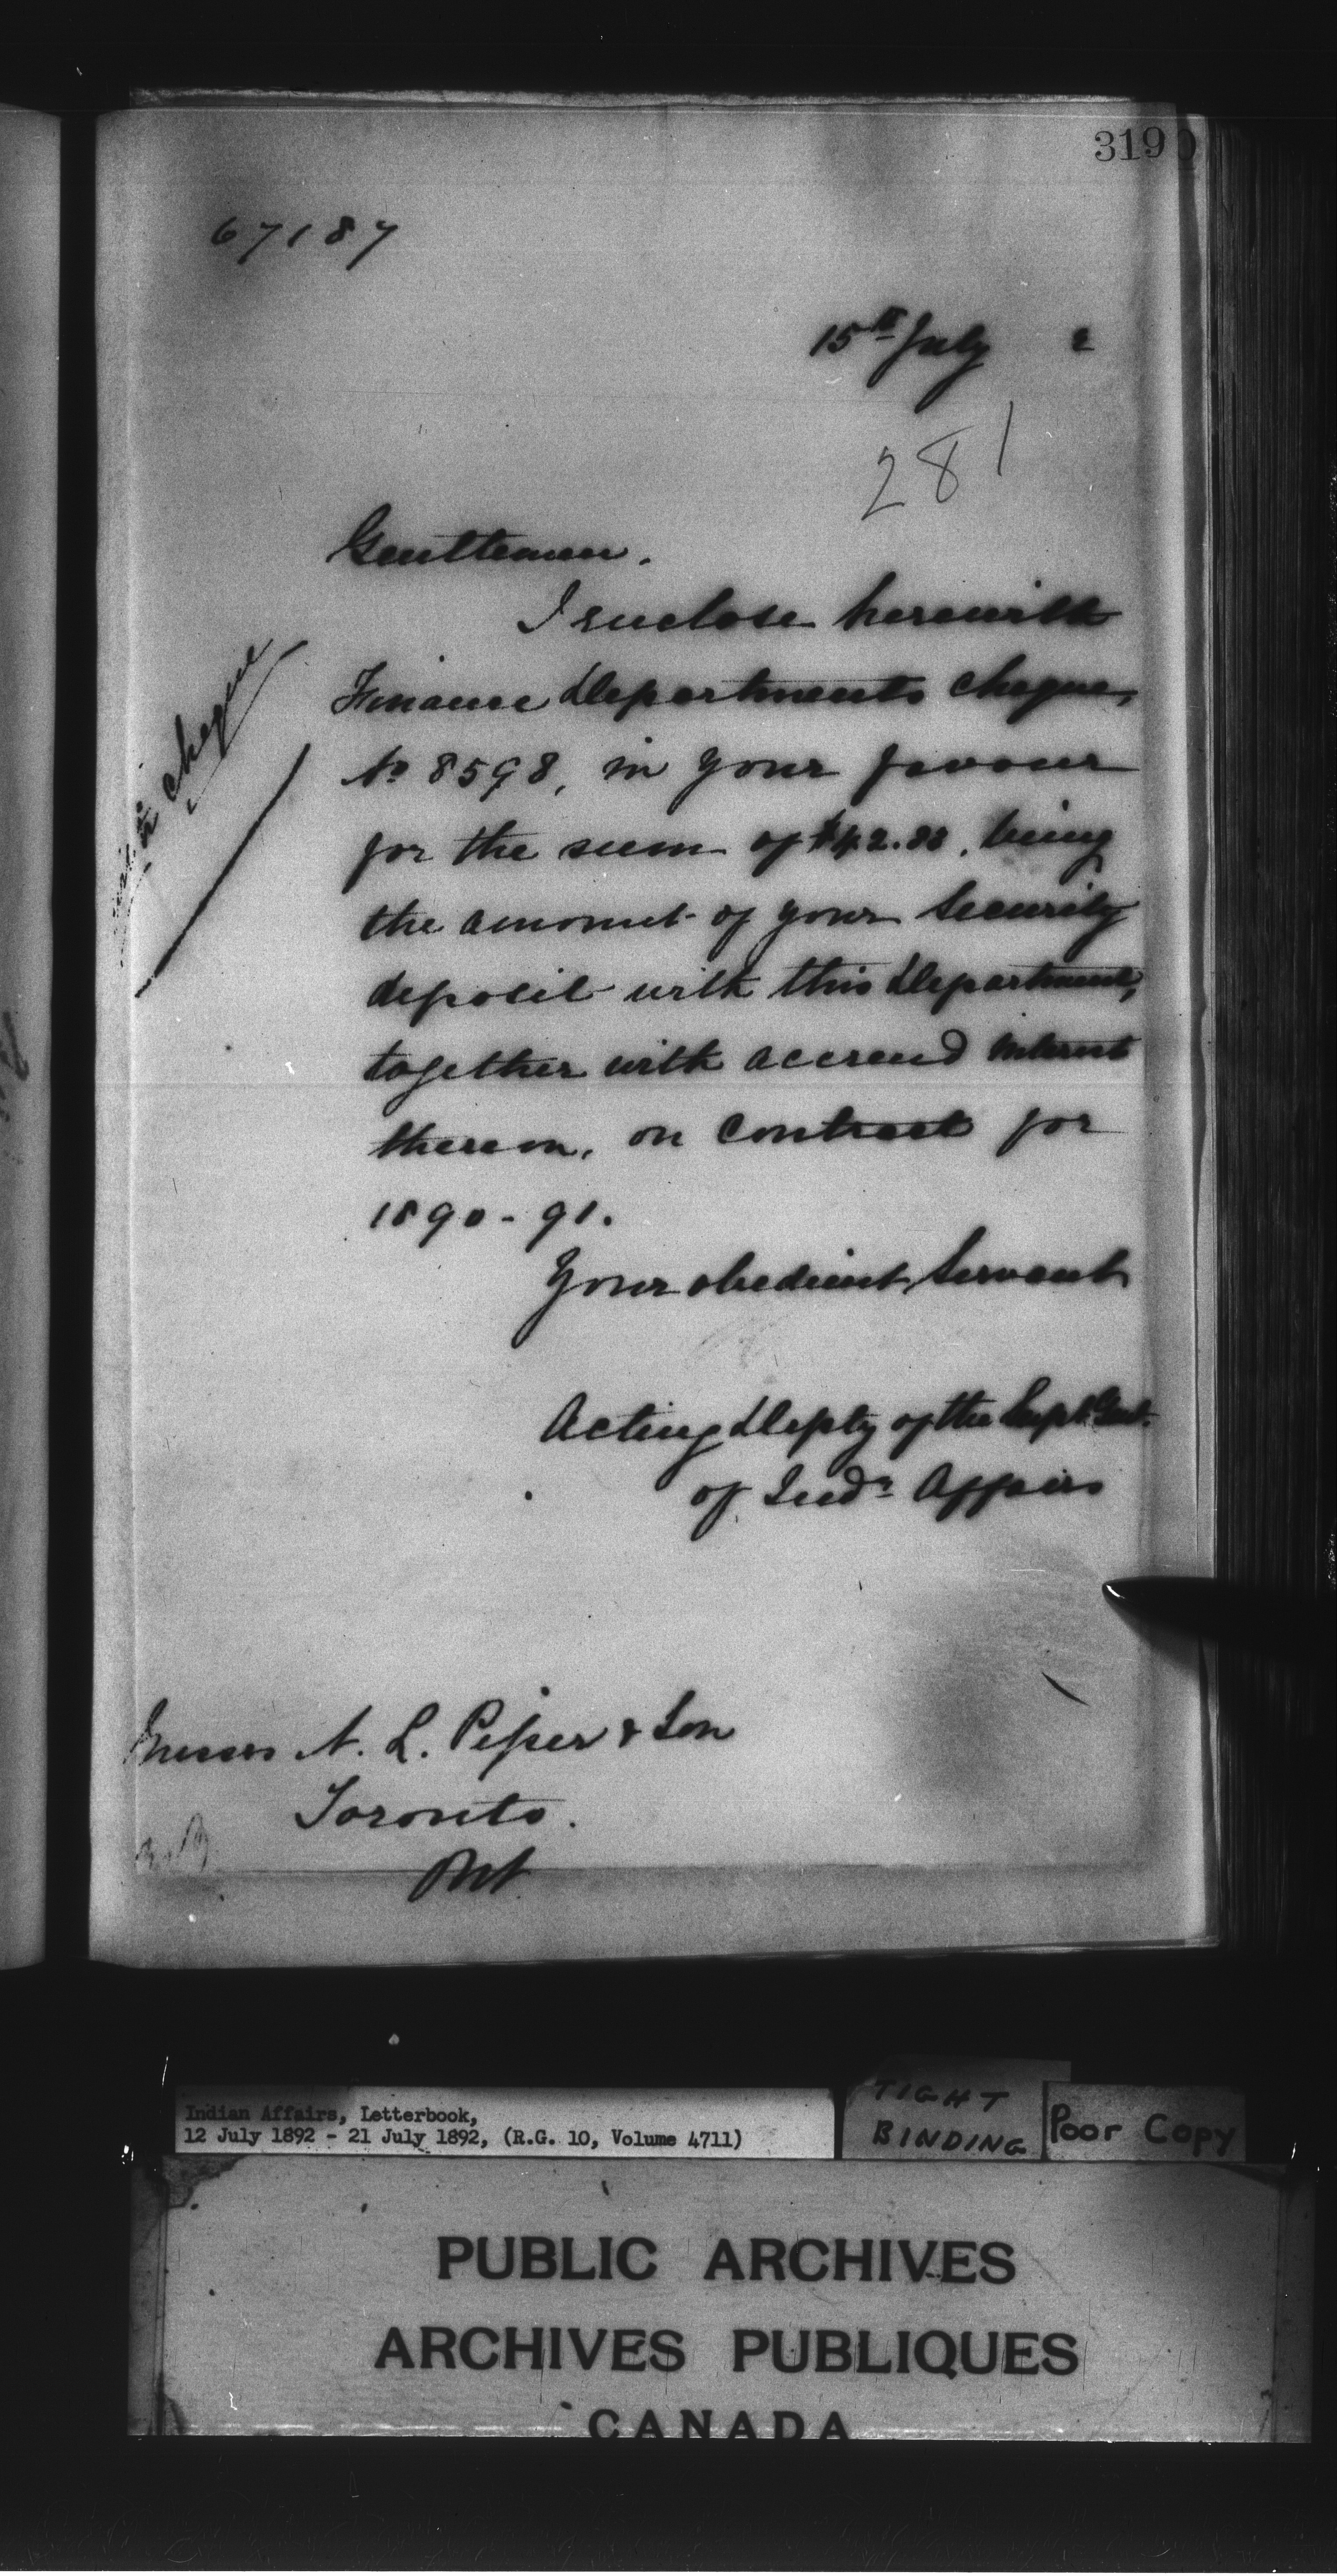 319
67187
15th July 2
281
Gentlemen.
I enclose herewith
Finance Departments cheque,
No 8598, in your favour
for the sum of $42.88, being
the amount of your Security
deposit with this Department,
together with accrued interest
thereon, on Contract for
1890-91.
Your obedient Servant
Acting Depty of the Supt. Genl.
of Indn Affairs
cheque
Messrs N. L. Piper & Son
Toronto.
Ont
Indian Affairs, Letterbook,
12 July 1892 - 21 July 1892, (R.G. 10, Volume 4711)
TIGHT
BINDING
Poor Copy
PUBLIC ARCHIVES
ARCHIVES PUBLIQUES
CANADA